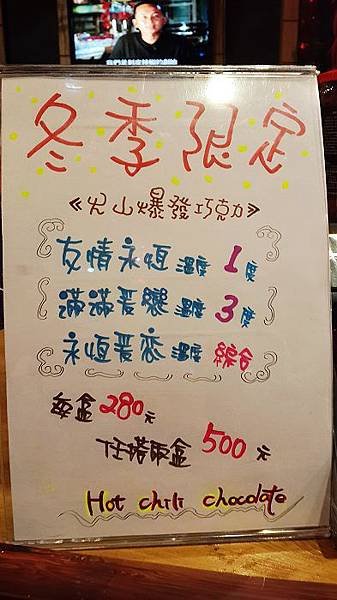 冬季限定
《火山爆發巧克力》
友情永恆 溫度 1度
滿滿愛戀 溫度 3度
永恆愛戀 溫度 綜合
每盒 280元
任搭兩盒 500元
Hot chili chocolate